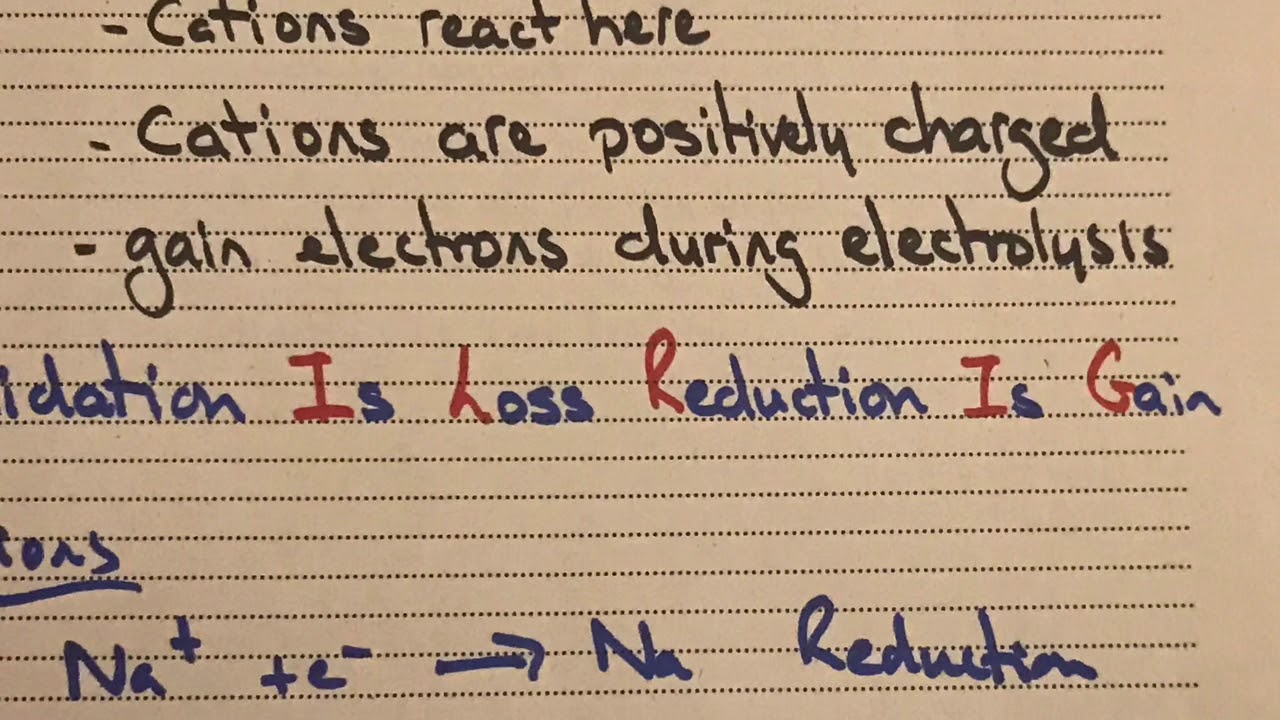 - Cations react here
- Cations are positively charged
- gain electrons during electrolysis
idation Is Loss Reduction Is Gain
ions
Na⁺ +e⁻ → Na Reduction